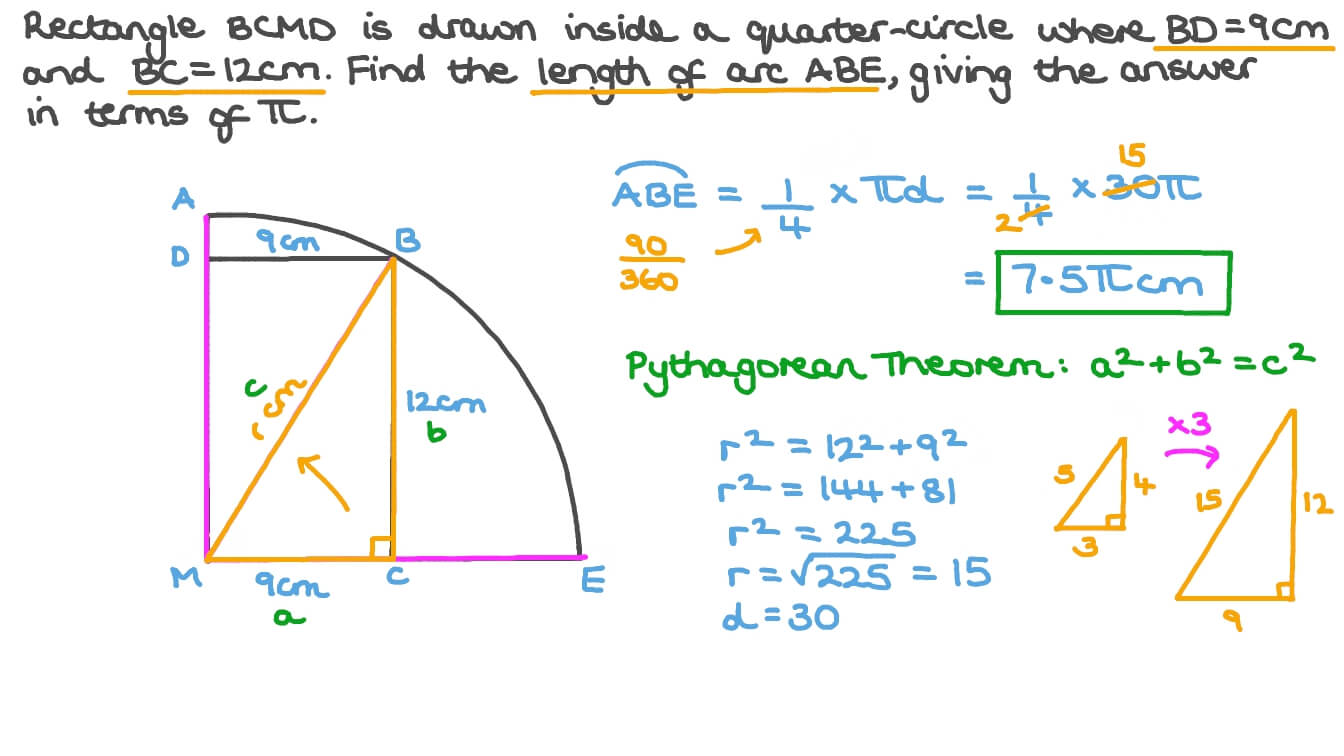 Rectangle BCMD is drawn inside a quarter-circle where BD=9cm
and BC=12cm. Find the length of arc ABE, giving the answer
in terms of π.
ABE = 1/4 × πd = 1/4 × 30π
15
2
90/360
= 7.5π cm
A
D
9cm
B
c
r
12cm
b
M
9cm
a
C
E
Pythagorean Theorem: a²+b²=c²
r² = 12²+9²
r² = 144+81
r² = 225
r=√225 = 15
d=30
×3
5
4
3
15
12
9